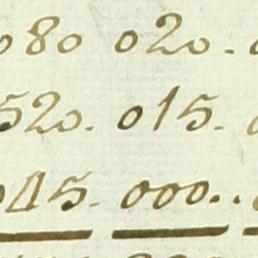 080 020.
520. 015.
045. 000..